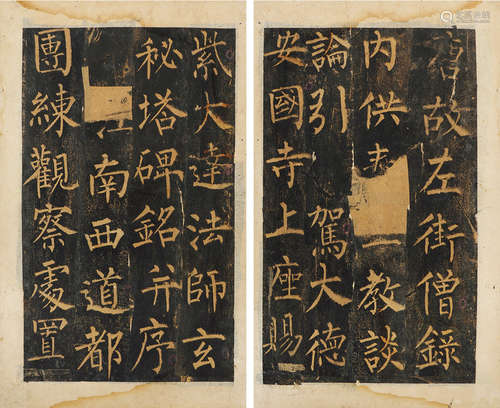 故左街僧錄
內供教談
論引駕大德
安國寺上座賜
紫大達法師玄
秘塔碑銘并序
江南西道都
團練觀察處置